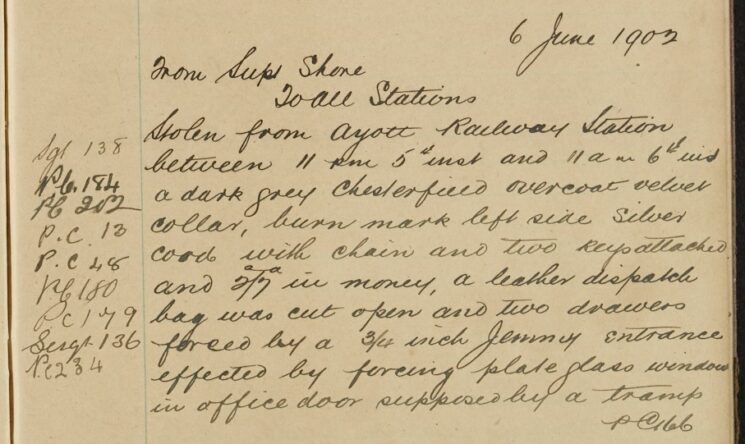 6 June 1902
From Supt Shore
To All Stations
Stolen from Ayott Railway Station
between 11 pm 5th inst and 11 am 6th inst
a dark grey Chesterfield overcoat velvet
collar, burn mark left side Silver
cord with chain and two keys attached
and in money, a leather dispatch
bag was cut open and two drawers
forced by a 3/4 inch Jemmy entrance
effected by forcing plate glass window
in office door supposed by a tramp
PC 166
Sgt 138
PC. 184
PC 202
P.C. 13
P.C 48
PC 180
PC 179
Sergt 136
PC 234